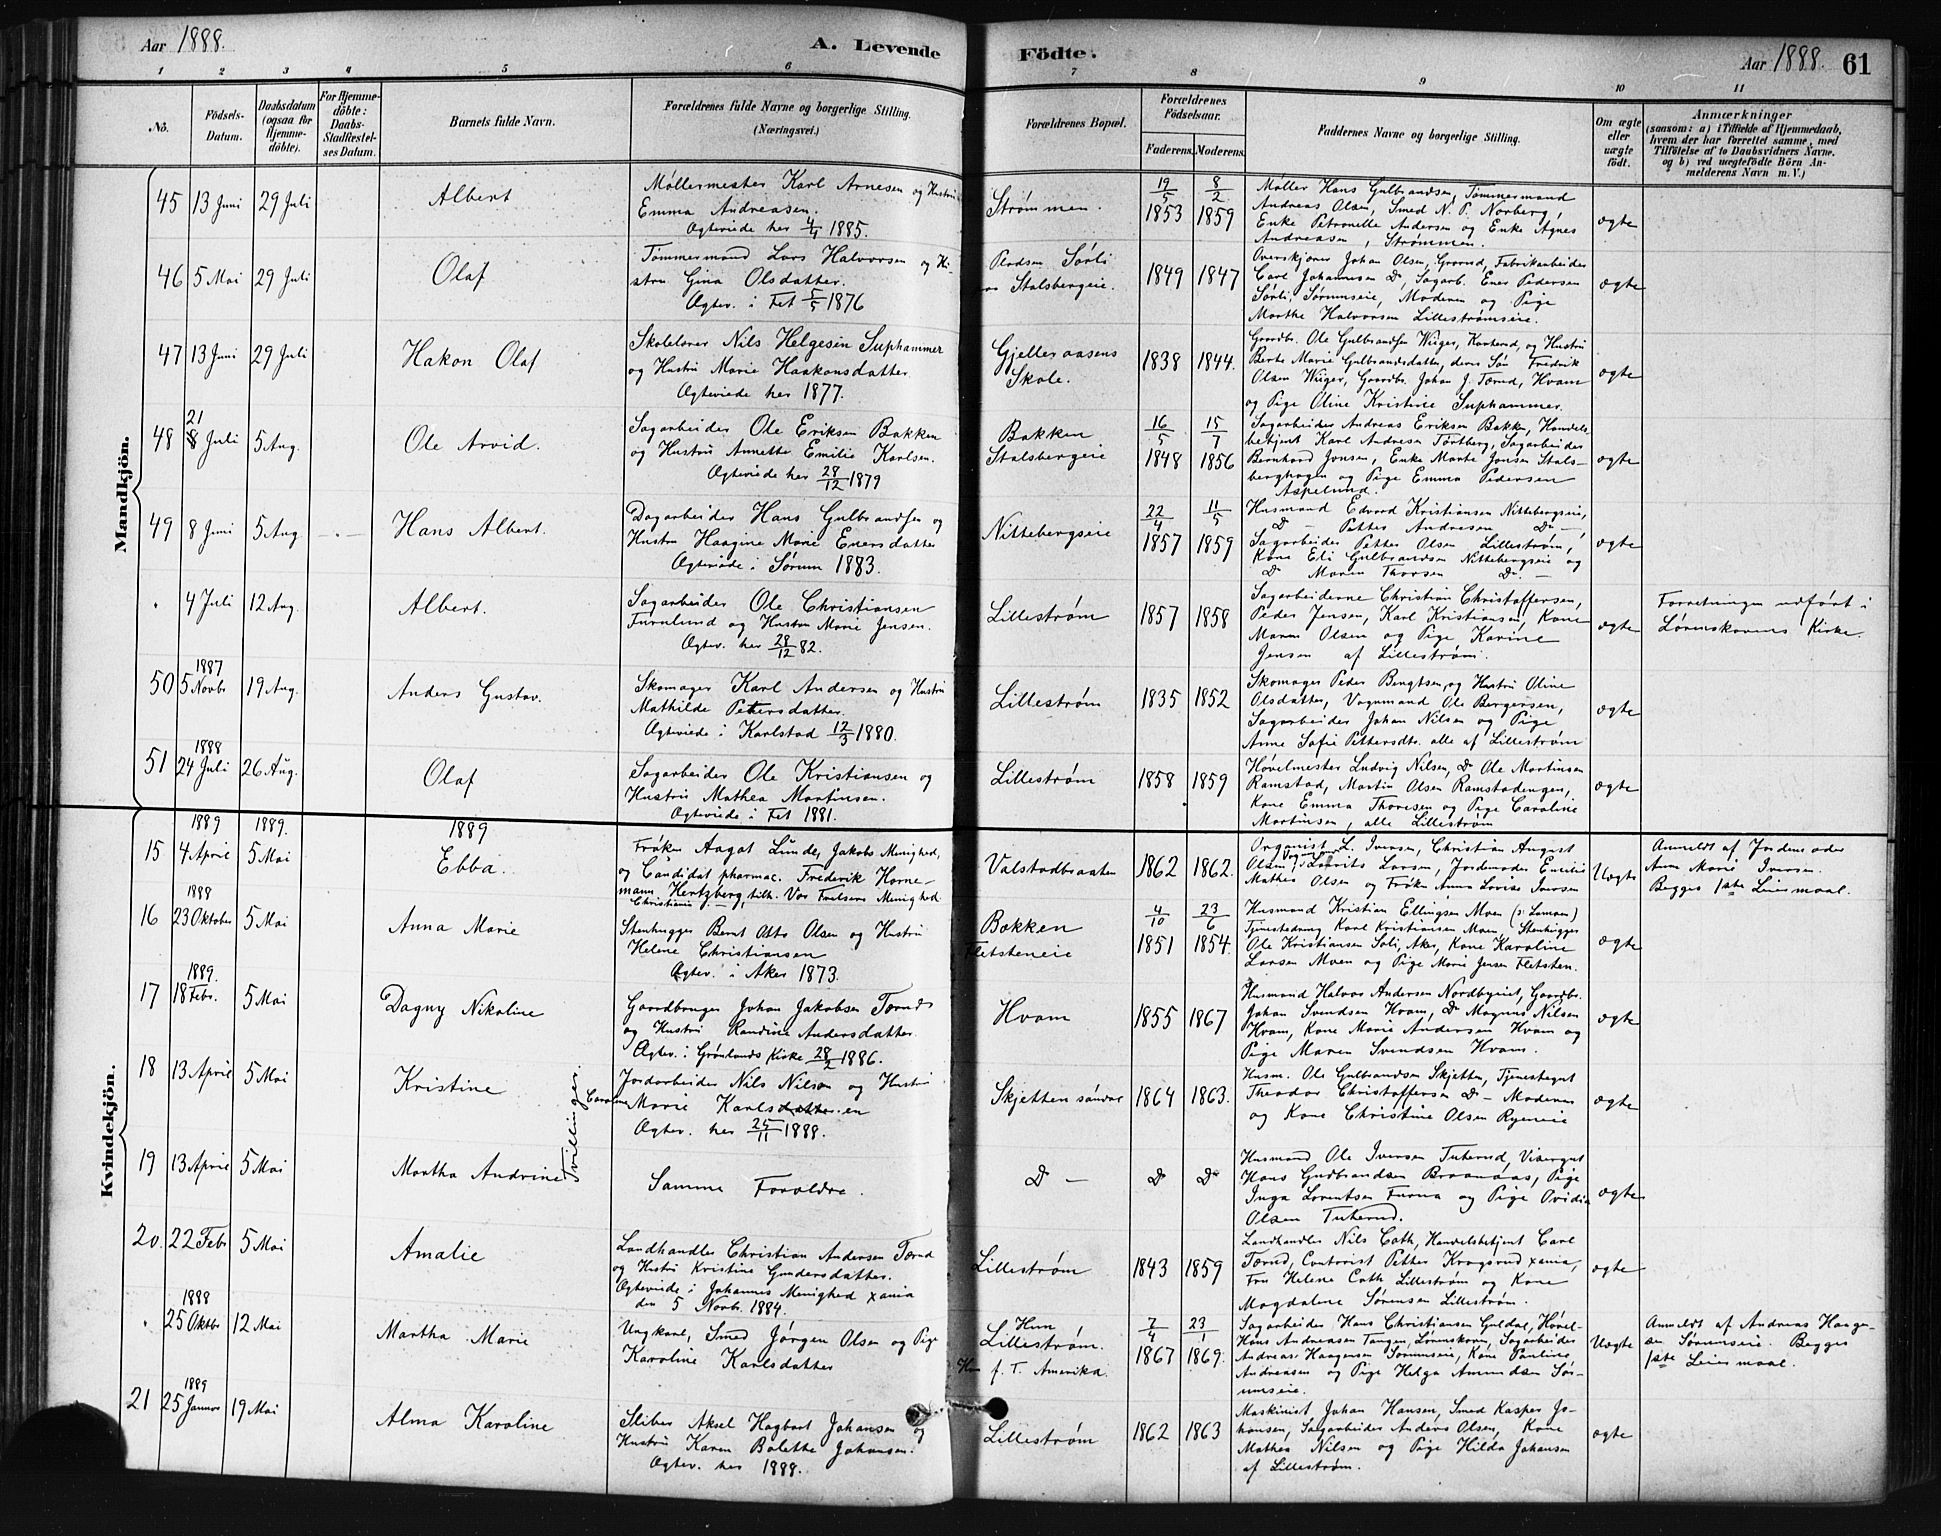 Aar 1888.
A. Levende
Födte.
Aar 1888. 61
1 2 3 4 5 6 7 8 9 10 11
Nö.
Födsels-
Datum.
Daabsdatum
(ogsaa för
Hjemme-
döbte).
For Hjemme-
döbte:
Daabs-
Stadfæstel-
ses Datum.
Barnets fulde Navn.
Forældrenes fulde Navne og borgerlige Stilling.
(Næringsvei.)
Forældrenes Bopæl.
Forældrenes
Födselsaar.
Faderens. Moderens.
Faddernes Navne og borgerlige Stilling.
Om ægte
eller
uægte
födt.
Anmærkninger
(saasom: a) i Tilfælde af Hjemmedaab,
hvem der har forrettet samme, med
Tilföielse af to Daabsvidners Navne.
og b) ved uægtefödte Börn An-
melderens Navn m. V.)
Mandkjön.
45 13 Juni 29 Juli
Albert
Møllermester Karl Arnesen og Hustru
Emma Andreasen.
Ægteviede her 4/4 1885.
Strømmen.
19/5 1853
8/2 1859
Møller Hans Gulbrandsen, Tømmermand
Andreas Olsen, Smed N. P. Norberg,
Enke Petronelle Andersen og Enke Agnes
Andreasen, Strømmen.
ægte
46 5 Mai 29 Juli
Olaf
Tømmermand Lars Halvorsen og Hu-
stru Gina Olsdatter.
Ægtev. i Fet 5/5 1876
Pladsen Sørli
Stalsbergeie.
1849 1847
Overskjærer Johan Olsen, Fabrikarbeider
Carl Johannesen Do, Sagarb. Ener Pedersen
Sørli, Sørumseie, Moderen og Pige
Marthe Halvorsen Lillestrømseie.
ægte
47 13 Juni 29 Juli
Hakon Olaf
Skolelærer Nils Helgesen Suphammer
og Hustru Marie Haakonsdatter
Ægteviede her 1877.
Gjelleraasens
Skole.
1838 1844.
Gaardbr. Ole Gulbrandsen Wiger, og Hustru
Berte Marie Gulbrandsdatter, deres Søn Fredrik
Olsen Wiger, Gaardbr. Johan J. Tærud, Hvam
og Pige Oline Kristine Suphammer.
ægte
48 21 Juli 5 Aug.
Ole Arvid.
Sagarbeider Ole Eriksen Bakken
og Hustru Annette Emilie Karlsen.
Ægteviede her 28/12 1879
Bakken
Stalsbergeie
16/5 1848
15/7 1856
Sagarbeider Andreas Eriksen Bakken, Handels
betjent Karl Andresen Tørtberg, Sagarbeider
Bernhard Jensen, Enke Marte Jensen Stals-
berghagen og Pige Emma Pedersen
Aspelund.
ægte
49 8 Juni 5 Aug.
Hans Albert.
Dagarbeider Hans Gulbrandsen og
Hustru Haagine Marie Enersdatter
Ægteviede i Sørum 1883.
Nittebergseie
22/4 1857
11/5 1859
Husmand Edvard Kristiansen Nittebergseie,
Do — Petter Andresen Do —,
Sagarbeider Petter Olsen Lillestrøm,
Kone Eli Gulbrandsen Nittebergseie og
Do Maren Thorsen Do. —
ægte
4 Juli 12 Aug.
Albert.
Sagarbeider Ole Christiansen
Furulund og Hustru Marie Jensen.
Ægtev. her 28/12 82.
Lillestrøm
1857 1858
Sagarbeiderne Christian Christoffersen,
Peder Jensen, Karl Kristiansen, Kone
Maren Olsen og Pige Karine
Jensen af Lillestrøm.
ægte
Forretningen udført i
Lørenskovens Kirke.
50 1887 5 Novbr 19 Aug.
Anders Gustav.
Skomager Karl Andersen og Hustru
Mathilde Pettersdatter.
Ægteviede i Karlstad 12/3 1880.
Lillestrøm
1835 1852
Skomager Peder Bengtsen, og Hustru Oline
Olsdatter, Vognmand Ole Bergersen,
Sagarbeider Johan Nilsen og Pige
Anne Sofie Pettersdtr. alle af Lillestrøm
ægte
51 1888 24 Juli 26 Aug.
Olaf
Sagarbeider Ole Kristiansen og
Hustru Mathea Martinsen.
Ægteviede i Fet 1881.
Lillestrøm
1858 1859
Høvelmester Ludvig Nilsen, Do Ole Martinsen
Ramstad, Martin Olsen Ramstadengen,
Kone Emma Thoresen og Pige Caroline
Martinsen, alle Lillestrøm
ægte
Kvindekjön.
15 1889 4 April 1889. 5 Mai
1889
Ebba.
Frøken Aagot Lunde, Jakobs Menighed,
og Candidat pharmac. Frederik Horne-
mann Hertzberg, tilh. Vor Frelsers Menighed
Christiania
Valstadbraaten
1862 1862.
Organist L. Iversen, Christian August
Olsen, Laurits Larsen, Jordemoder Emilie
Mathea Olsen og Frøken Anna Lovise Iversen
Uægte
Anmeldt af Jordemoder
Anne Marie Iversen.
Begges 1ste Leiermaal.
16 1888 23 Oktober 5 Mai
Anna Marie
Stenhugger Bernt Otto Olsen og Hustru
Helene Christiansen
Ægtev. i Aker 1873.
Bakken
Fletsteneie
4/10 1851
23/6 1854.
Husmand Kristian Ellingsen Moen
Tjenestedreng Karl Kristiansen Moen, Stenhugger
Ole Kristiansen Soli, Aker, Kone Karoline
Larsen Moen og Pige Marie Jensen Fletsten.
ægte
17 1889. 18 Febr. 5 Mai
Dagny Nikoline
Gaardbruger Johan Jakobsen Tærud
og Hustru Randine Andersdatter.
Ægtev. i Grønlands Kirke 28/2 1886.
Hvam
1855 1867
Husmand Halvor Andersen Nordbyeiet, Gaardbr.
Johan Svendsen Hvam, Do Magnus Nilsen
Hvam, Kone Marie Andersen Hvam og
Pige Maren Svendsen Hvam.
ægte
18 13 April 5 Mai
Kristine
Tvillinger.
Jordarbeider Nils Nilsen og Hustru
Caroline Marie Karlsdatter en
Ægtev. her 25/11 1888.
Skjetten søndre
1864 1863.
Husm. Ole Gulbrandsen Skjetten, Tjenestegut
Theodor Christoffersen Do — Moderen
og Kone Christine Olsen Ryeneie
ægte
19 13 April 5 Mai
Martha Andrine
Samme Forældre.
Do —
Do Do
Husmand Ole Iversen Tuterud, Visergut
Hans Gudbrandsen Braanaas, Pige
Inga Lorentsen Furua og Pige Ovidia
Olsen Tuterud.
ægte
20. 22 Febr 5 Mai
Amalie
Landhandler Christian Andersen Tærud
og Hustru Kristine Gundersdatter.
Ægteviede i Johannes Menighed Xania
den 5 Novbr. 1884.
Lillestrøm
1843 1859
Landhandler Nils Coth, Handelsbetjent Carl
Tærud, Contorist Petter Kragsrud Xania,
Fru Helene Coth Lillestrøm og Kone
Magdalene Sørensen Lillestrøm.
ægte
1888 25 Oktbr 12 Mai
Martha Marie
Ungkarl, Smed Jørgen Olsen og Pige
Karoline Karlsdatter
Hun
Lillestrøm.
Han f. T. Amerika.
7/4 1867
23/1 1869.
Sagarbeider Hans Christiansen Guldal, Høvel-
Hans Andreasen Tangen, Lørenskoven, Sagarbeider
Andreas Haagensen Sørumseie, Kone Pauline
Andreasen og Pige Helga Amundsen Sør-
umseie.
Uægte
Anmeldt af Andreas Haagen-
sen Sørumseie. Begges
1ste Leiermaal.
21 1889 25 Januar 19 Mai
Alma Karoline
Sliber Aksel Hagbart Johansen og
Hustru Karen Bolette Johansen.
Ægtev. her 1888.
Lillestrøm
1862 1863
Maskinist Johan Hansen, Smed Kasper Jo-
hansen, Sagarbeider Anders Olsen, Kone
Mathea Nilsen og Pige Hilda Johansen
af Lillestrøm.
ægte